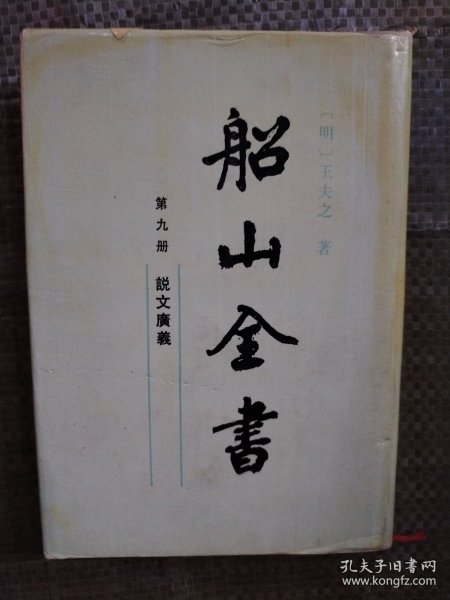 〔明〕王夫之 著
船山全書
第九册 説文廣義
孔夫子旧书网
www.kongfz.com